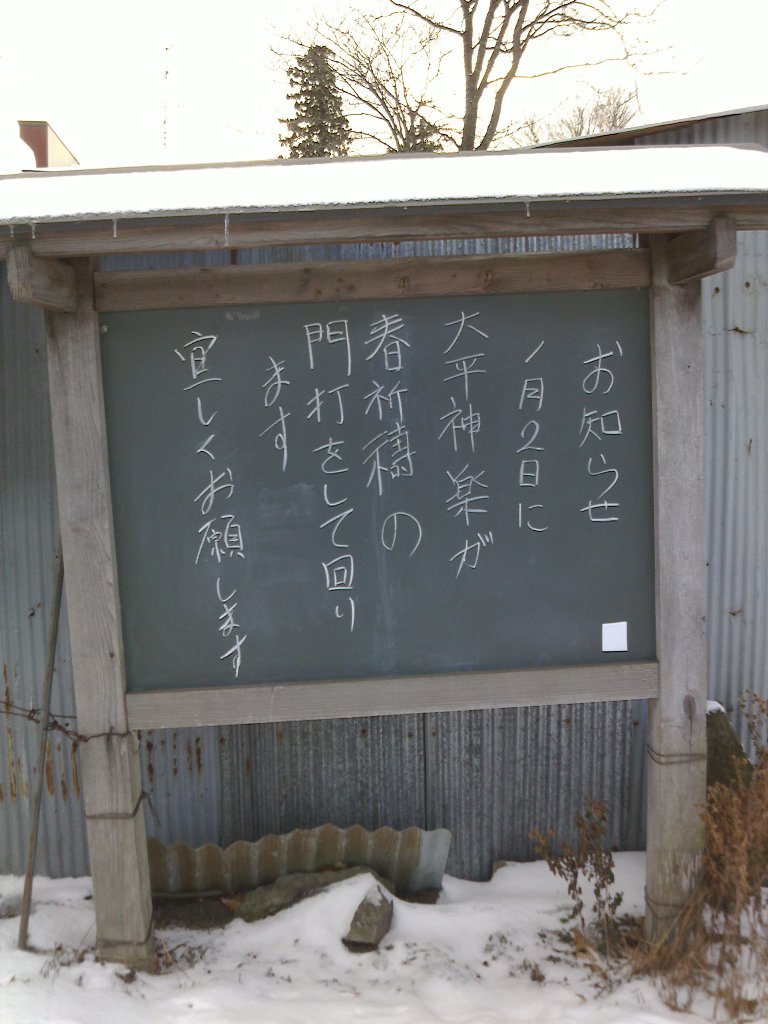 お知らせ
1月2日に
大平神楽が
春祈禱の
門打をして回り
ます
宜しくお願します